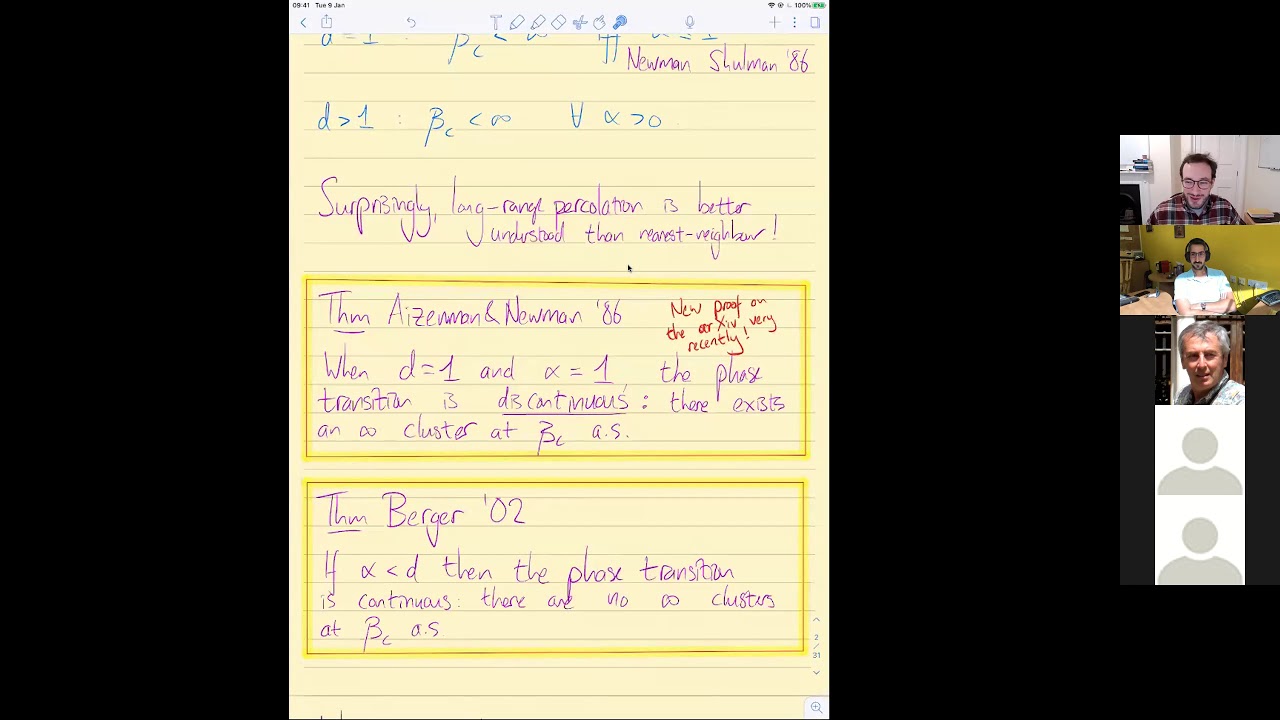 09:41 Tue 9 Jan
100%
d = 1 : βc < ∞ iff α ≤ 1
Newman Shulman '86
d > 1 : βc < ∞ ∀ α > 0
Surprisingly, long-range percolation is better
understood than nearest-neighbour!
Thm Aizenman & Newman '86
New proof on
the arXiv very
recently!
When d = 1 and α = 1 the phase
transition is discontinuous : there exists
an ∞ cluster at βc a.s.
Thm Berger '02
If α < d then the phase transition
is continuous: there are no ∞ clusters
at βc a.s
2
/
31